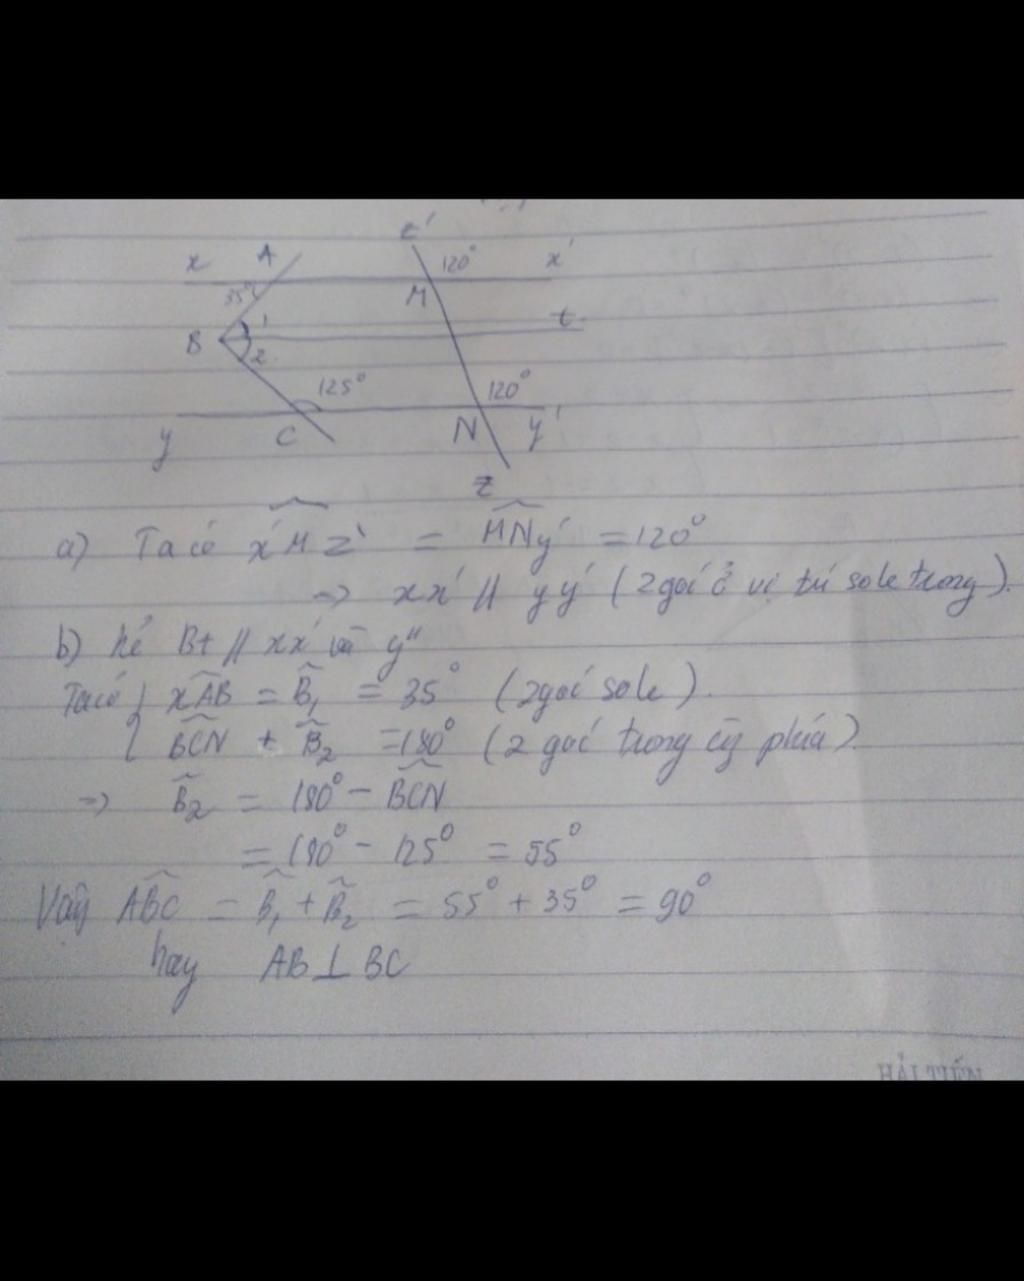 z'
x A 120° x'
35° M
B 1 t
2
125° 120°
y C N y'
z
a) Ta có x'Mz' = MNy' = 120°
=> xx' // yy' (2 góc ở vị trí sole trong).
b) kẻ Bt // xx' và y"
Ta có { xAB = B1 = 35° (2 góc sole).
BCN + B2 = 180° (2 góc trong cg phía).
=> B2 = 180° - BCN
= 180° - 125° = 55°
Vậy ABC = B1 + B2 = 55° + 35° = 90°
hay AB ⊥ BC
HẢI TIẾN